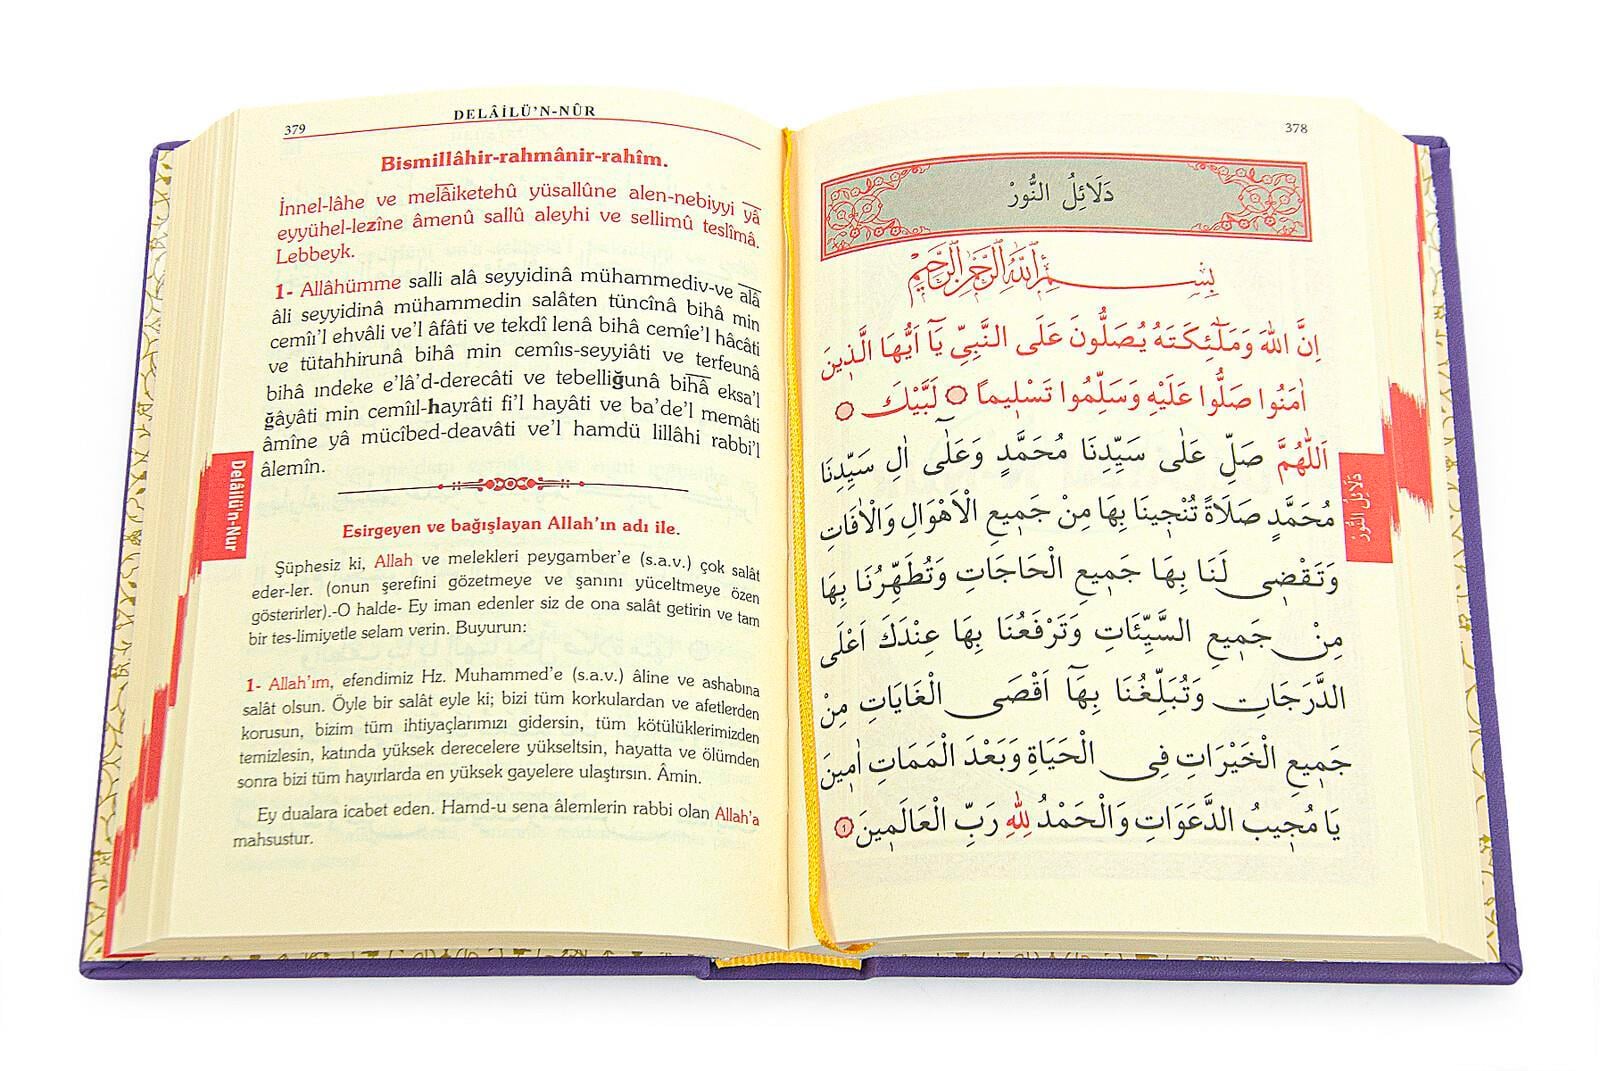 378
دَلَائِلُ النُّورْ
بِسْمِ اللّٰهِ الرَّحْمٰنِ الرَّحِيمِ
اِنَّ اللّٰهَ وَمَلٰٓئِكَتَهُ يُصَلُّونَ عَلَى النَّبِىِّ يَٓا اَيُّهَا الَّذِينَ
اٰمَنُوا صَلُّوا عَلَيْهِ وَسَلِّمُوا تَسْلِيمًا لَبَّيْكَ
اَللّٰهُمَّ صَلِّ عَلٰى سَيِّدِنَا مُحَمَّدٍ وَعَلٰٓى اٰلِ سَيِّدِنَا
مُحَمَّدٍ صَلَاةً تُنْجِينَا بِهَا مِنْ جَمِيعِ الْاَهْوَالِ وَالْاٰفَاتِ
وَتَقْضِى لَنَا بِهَا جَمِيعِ الْحَاجَاتِ وَتُطَهِّرُنَا بِهَا
مِنْ جَمِيعِ السَّيِّئَاتِ وَتَرْفَعُنَا بِهَا عِنْدَكَ اَعْلَى
الدَّرَجَاتِ وَتُبَلِّغُنَا بِهَٓا اَقْصَى الْغَايَاتِ مِنْ
جَمِيعِ الْخَيْرَاتِ فِى الْحَيَاةِ وَبَعْدَ الْمَمَاتِ اٰمِينَ
يَا مُجِيبُ الدَّعَوَاتِ وَالْحَمْدُ لِلّٰهِ رَبِّ الْعَالَمِينَ ١
دَلَائِلُ النُّورْ
379
DELÂİLÜ'N-NÛR
Bismillâhir-rahmânir-rahîm.
İnnel-lâhe ve melâiketehû yüsallûne alen-nebiyyi yâ
eyyühel-lezîne âmenû sallû aleyhi ve sellimû teslîmâ.
Lebbeyk.
1- Allâhümme salli alâ seyyidinâ mühammediv-ve alâ
âli seyyidinâ mühammedin salâten tüncînâ bihâ min
cemîı'l ehvâli ve'l âfâti ve tekdî lenâ bihâ cemîe'l hâcâti
ve tütahhirunâ bihâ min cemîıs-seyyiâti ve terfeunâ
bihâ ındeke e'lâ'd-derecâti ve tebelliğunâ bihâ eksa'l
ğâyâti min cemîıl-hayrâti fi'l hayâti ve ba'de'l memâti
âmîne yâ mücîbed-deavâti ve'l hamdü lillâhi rabbi'l
âlemîn.
Esirgeyen ve bağışlayan Allah'ın adı ile.
Şüphesiz ki, Allah ve melekleri peygamber'e (s.a.v.) çok salât
eder-ler. (onun şerefini gözetmeye ve şanını yüceltmeye özen
gösterirler).-O halde- Ey iman edenler siz de ona salât getirin ve tam
bir tes-limiyetle selam verin. Buyurun:
1- Allah'ım, efendimiz Hz. Muhammed'e (s.a.v.) âline ve ashabına
salât olsun. Öyle bir salât eyle ki; bizi tüm korkulardan ve afetlerden
korusun, bizim tüm ihtiyaçlarımızı gidersin, tüm kötülüklerimizden
temizlesin, katında yüksek derecelere yükseltsin, hayatta ve ölümden
sonra bizi tüm hayırlarda en yüksek gayelere ulaştırsın. Âmin.
Ey dualara icabet eden. Hamd-u sena âlemlerin rabbi olan Allah'a
mahsustur.
Delâilü'n-Nur